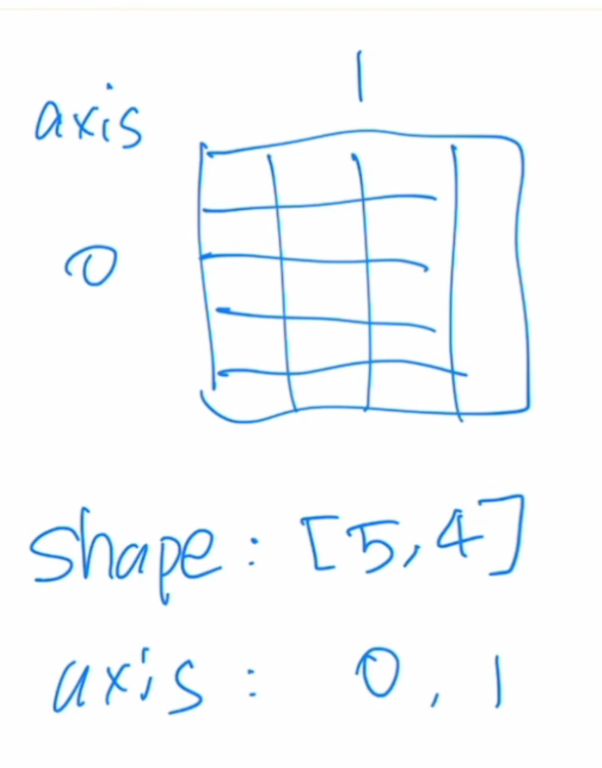 1
axis
0
shape: [5,4]
axis: 0, 1